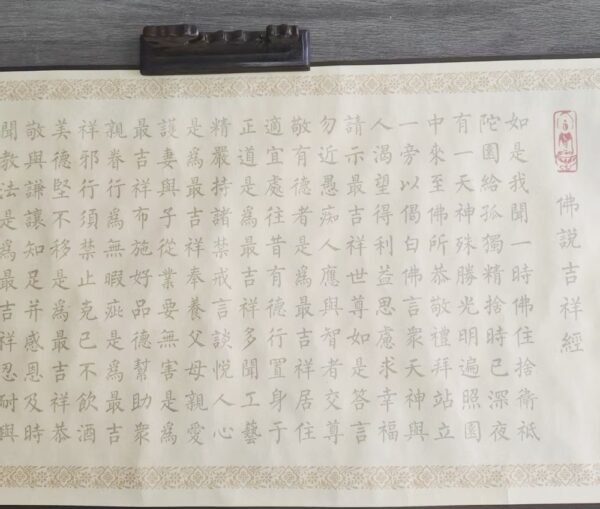 佛說吉祥經
如是我聞一時佛住捨衛祇
陀園給孤獨精捨時已深夜
有一天神殊勝光明遍照園
中來至佛所恭敬禮拜站立
一旁以偈白佛言衆天神與
人渴望得利益思慮求幸福
請示最吉祥世尊如是答言
勿近愚痴人應與智者交尊
敬有德者是爲最吉祥居住
適宜處往昔有德行置身于
正道是爲最吉祥多聞工藝
精嚴持諸禁戒言談悅人心
是爲最吉祥奉養父母親愛
護妻與子從業要無害是爲
最吉祥布施好品德幫助衆
親眷行爲無暇疵是爲最吉
祥邪行須禁止克己不飲酒
美德堅不移是爲最吉祥恭
敬與謙讓知足并感恩及時
聞教法是爲最吉祥忍耐與